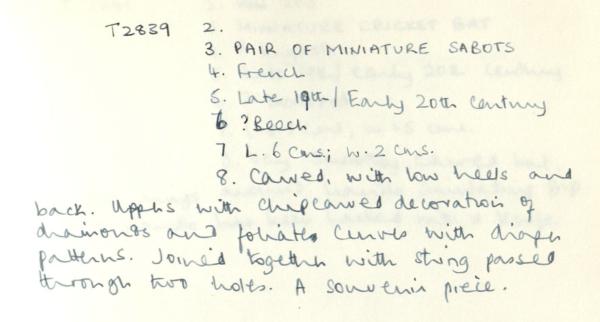 T2839 2.
3. PAIR OF MINIATURE SABOTS
4. French
5. Late 19th / Early 20th century
6 ?Beech
7 L. 6 cms; w. 2 cms.
8. Carved, with low heels and
back. Uppers with chipcarved decoration of
diamonds and foliate curves with diaper
patterns. Joined together with string passed
through two holes. A souvenir piece.